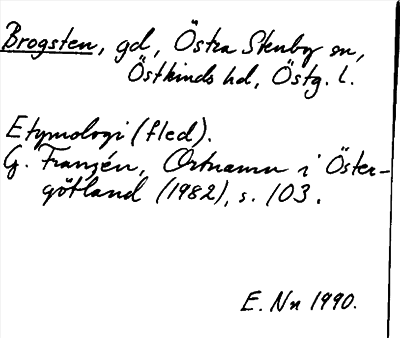 Brogsten, gd, Östra Stenby sn,
Östkinds hd, Östg. l.
Etymologi (fled).
G. Franzén, Ortnamn i Öster-
götland (1982), s. 103.
E. Nn 1990.